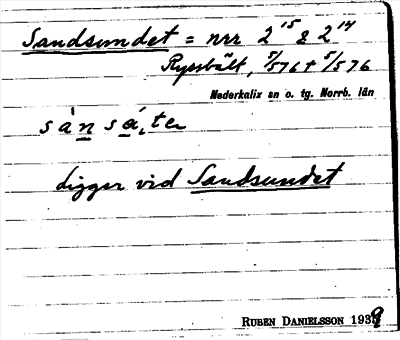 Sandsundet = nrr 2¹⁵ & 2¹⁴
Ryssbält, 5/576 + 5/576
Nederkalix sn o. tg. Norrb. län
ligger vid Sandsundet
RUBEN DANIELSSON 1939